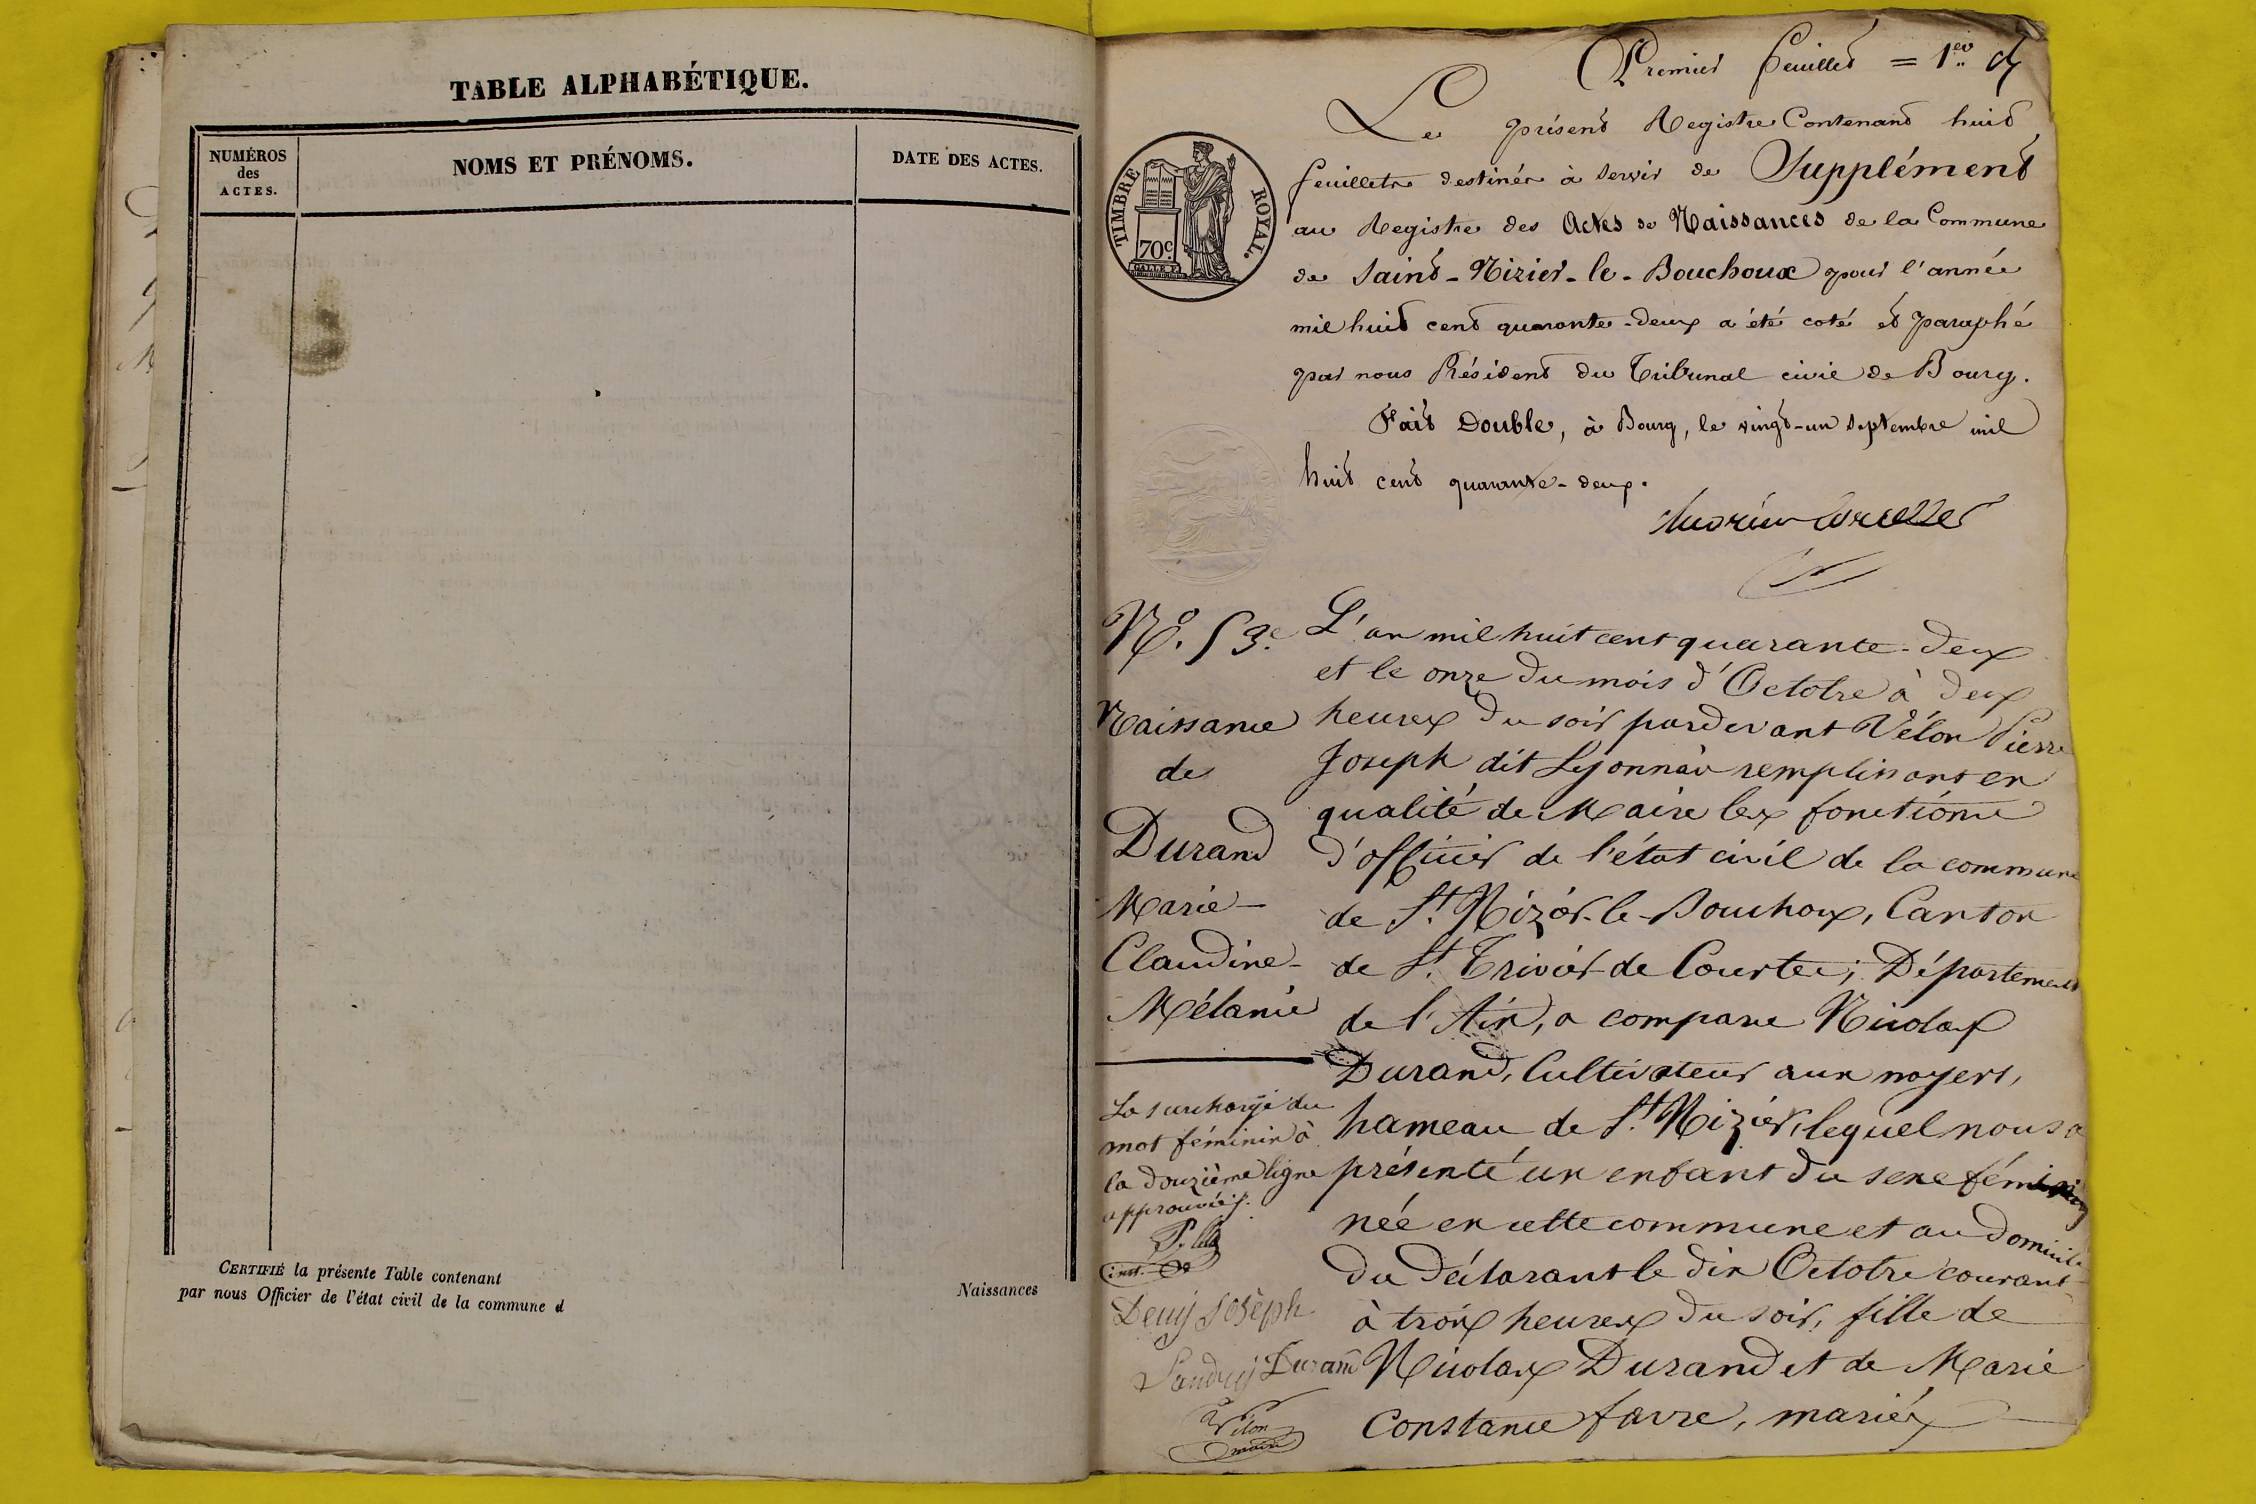 TABLE ALPHABÉTIQUE.
NUMÉROS
des
ACTES.
NOMS ET PRÉNOMS.
DATE DES ACTES.
CERTIFIÉ la présente Table contenant
Naissances
par nous Officier de l'état civil de la commune d
Premier feuillet = 1er
Le présent Registre Contenant huit
feuillets destinés à servir de Supplément
au Registre des Actes de Naissances de la Commune
de Saint-Nizier-le-Bouchoux pour l'année
mil huit cent quarante-deux a été coté et paraphé
par nous Président du Tribunal civil de Bourg.
Fait Double, à Bourg, le vingt-un Septembre mil
huit cent quarante-deux.
TIMBRE ROYAL.
70c.
No. 53.e
Naissance
de
Durand
Marie-
Claudine-
Mélanie
L'an mil huit cent quarante-deux
et le onze du mois d'Octobre à deux
heures du soir pardevant Vélon Pierre
Joseph dit Lyonnais remplissant en
qualité de Maire les fonctions
d'officier de l'état civil de la commune
de St. Nizier-le-Bouchoux, Canton
de St. Trivier de Courtes; Département
de l'Ain, a comparu Nicolas
Durand, Cultivateur aux noyers,
hameau de St. Nizier, lequel nous a
présenté un enfant du sexe féminin
née en cette commune et au domicile
du déclarant le dix Octobre courant
à trois heures du soir, fille de
Nicolas Durand et de Marie
Constance favre, mariés
La surcharge du
mot féminin à
la douzième ligne
approuvées.
inst.
Denis Joseph
Durand
Vélon
maire